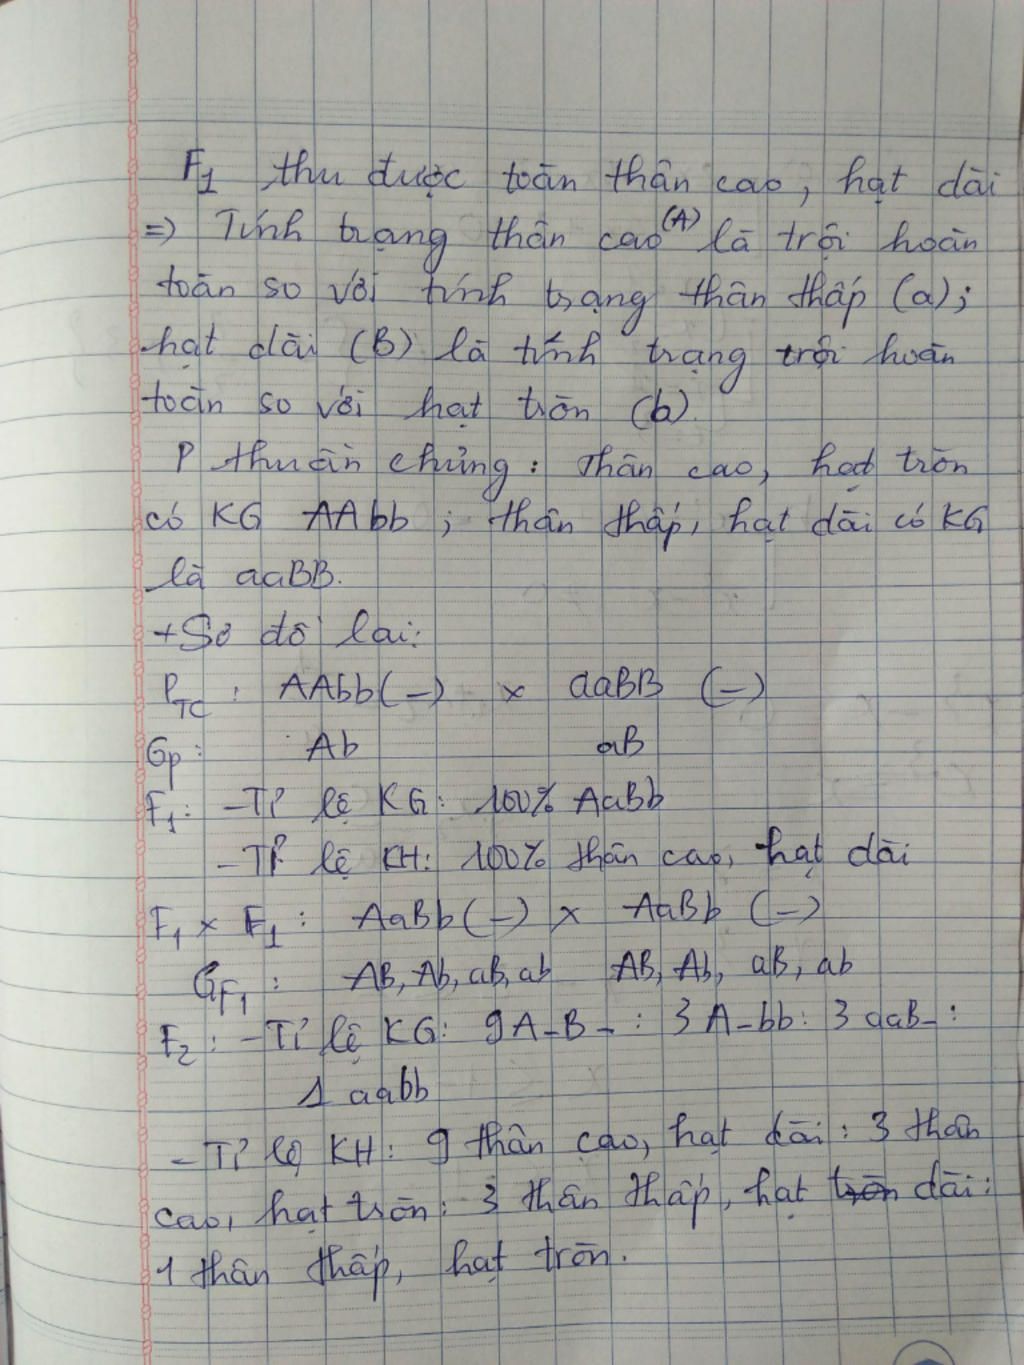 F1 thu được toàn thân cao, hạt dài
=) Tính trạng thân cao (A) là trội hoàn
toàn so với tính trạng thân thấp (a);
hạt dài (B) là tính trạng trội hoàn
toàn so với hạt tròn (b).
P thuần chủng: Thân cao, hạt tròn
có KG AAbb ; thân thấp, hạt dài có KG
là aaBB.
+ Sơ đồ lai:
PTC : AAbb (–) x aaBB (–)
Gp : Ab aB
F1 : - Tỉ lệ KG: 100% AaBb
- Tỉ lệ KH: 100% thân cao, hạt dài
F1 x F1 : AaBb (–) x AaBb (–)
GF1 : AB, Ab, aB, ab AB, Ab, aB, ab
F2 : - Tỉ lệ KG: 9 A-B- : 3 A-bb : 3 aaB- :
1 aabb
- Tỉ lệ KH: 9 thân cao, hạt dài : 3 thân
cao, hạt tròn : 3 thân thấp, hạt tròn dài :
1 thân thấp, hạt tròn.